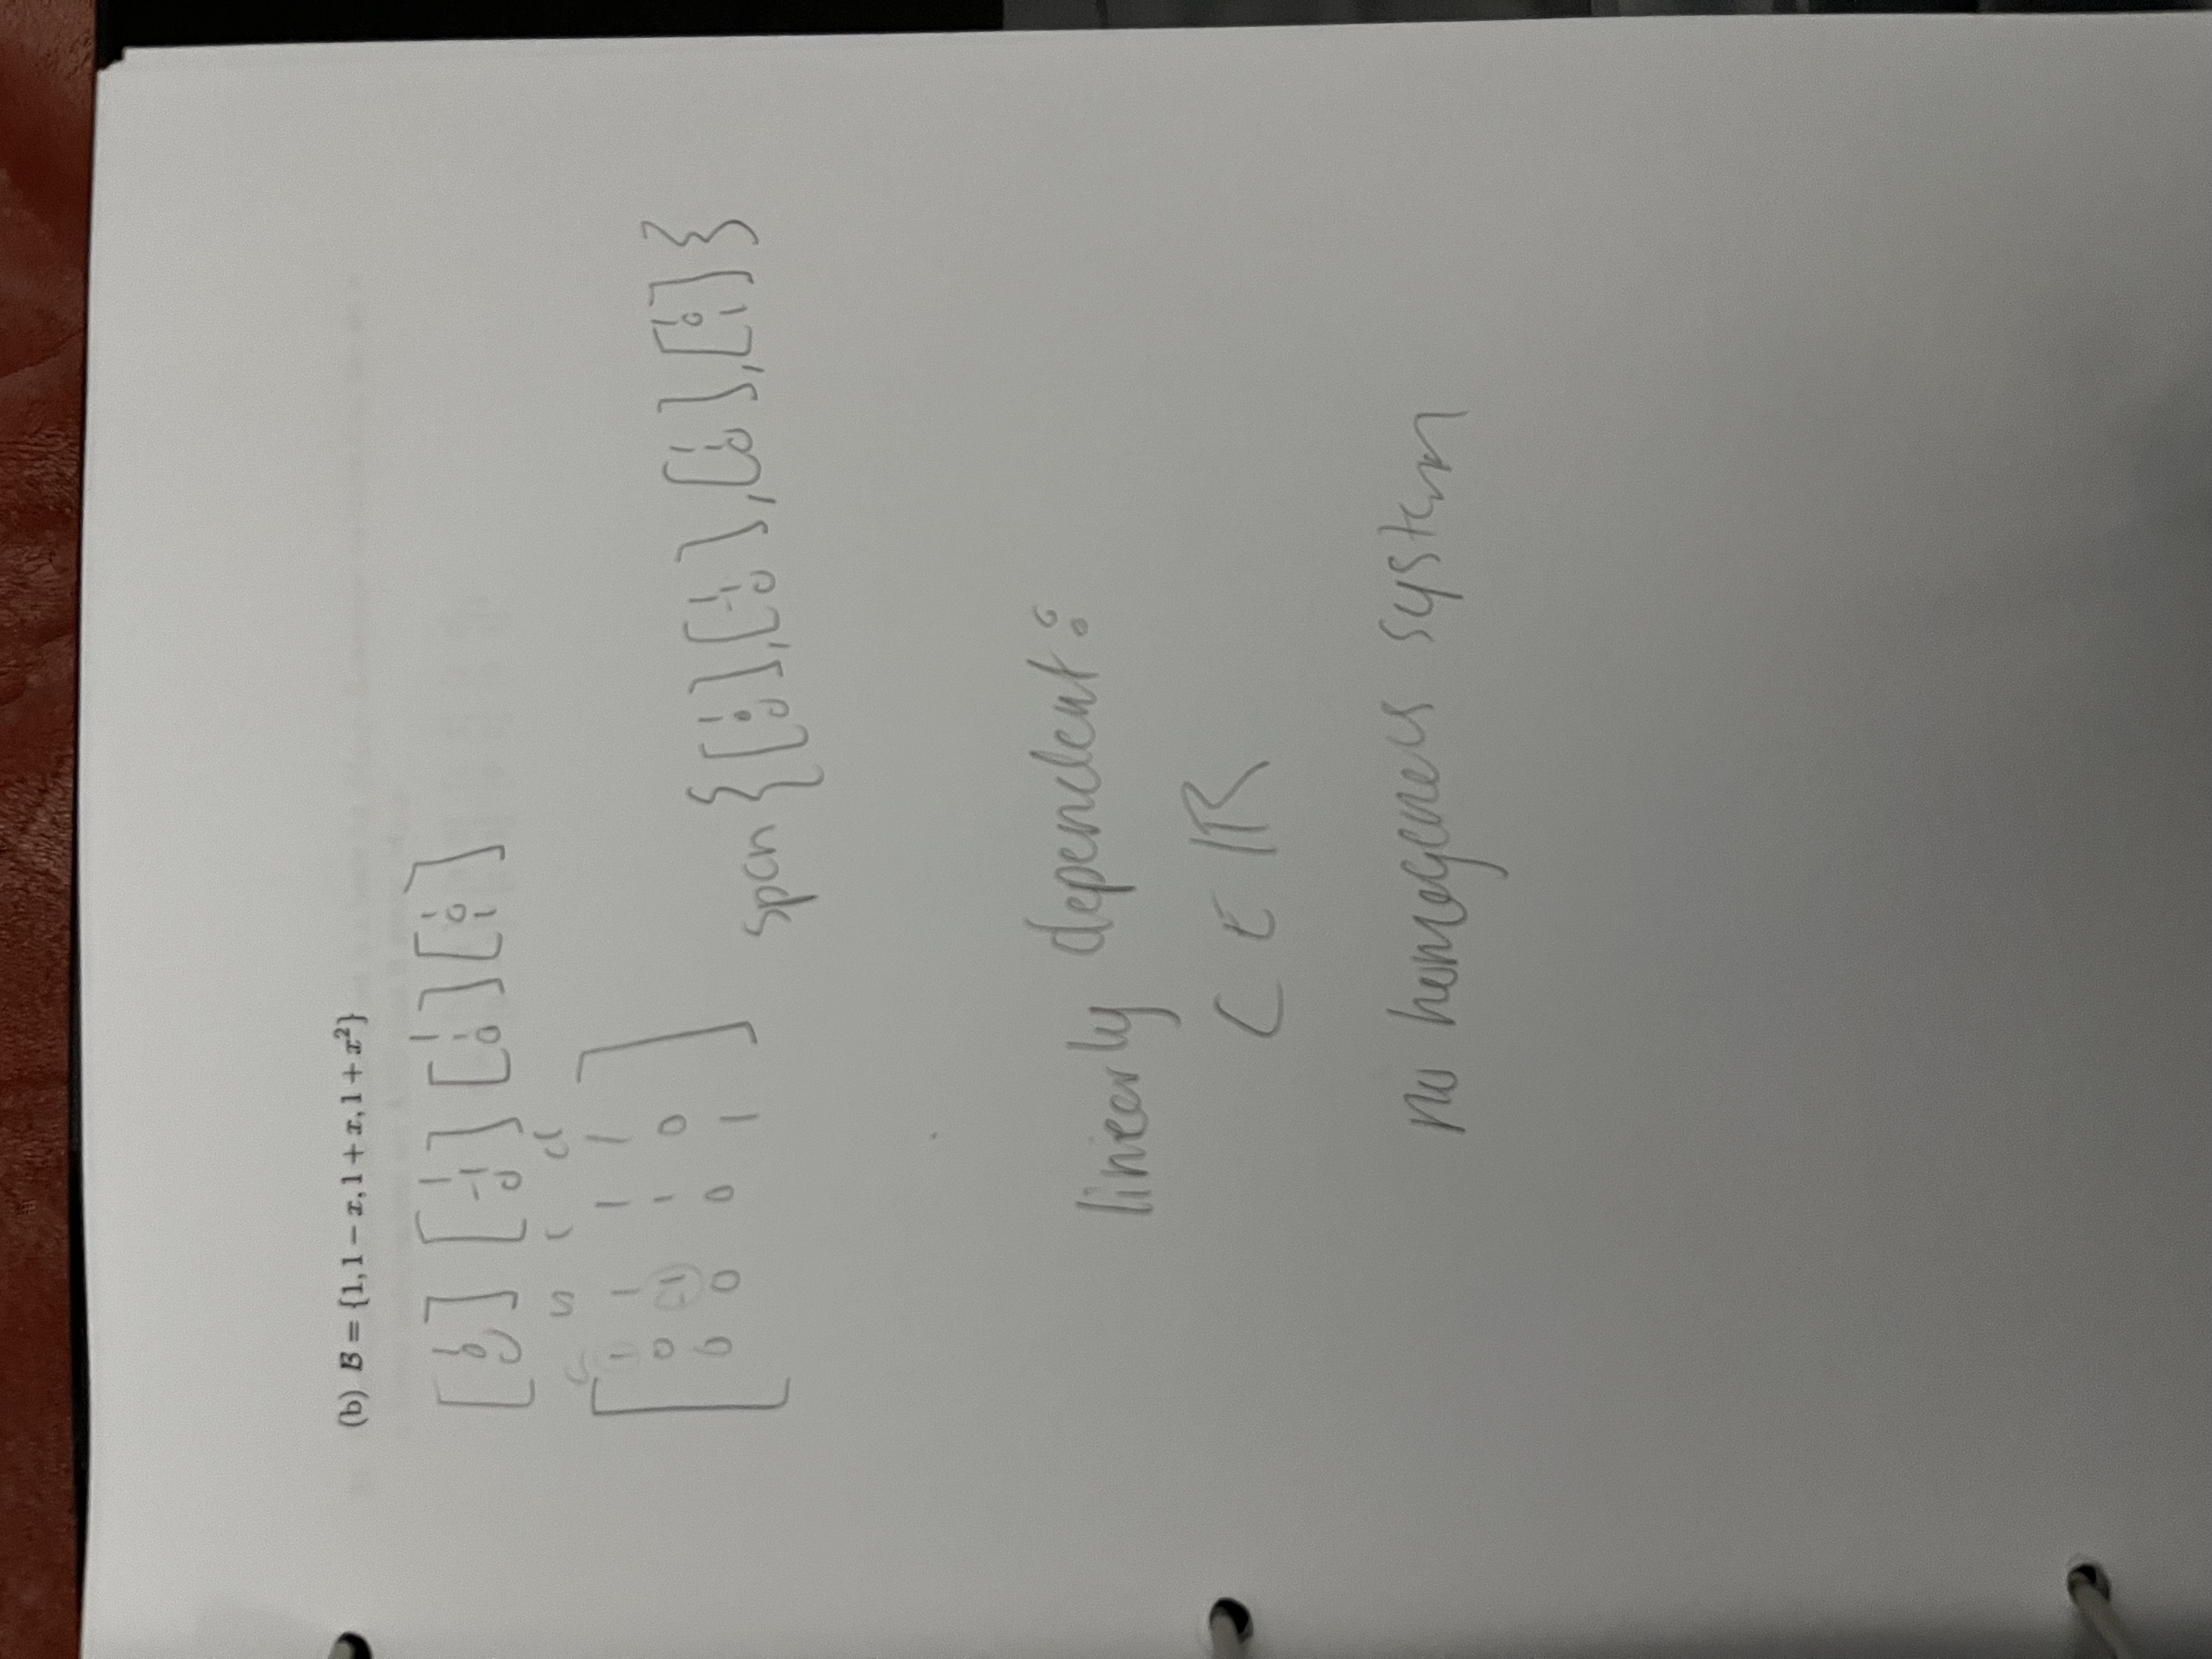 (b) B = {1, 1 − x, 1 + x, 1 + x²}
[1 0 0] [1 -1 0] [1 1 0] [1 0 1]
d
[1 1 1 1
0 -1 1 0
0 0 0 1]
span {[1 0 0], [1 -1 0], [1 1 0], [1 0 1]}
linearly dependent:
C ∈ ℝ
no homogeneus system